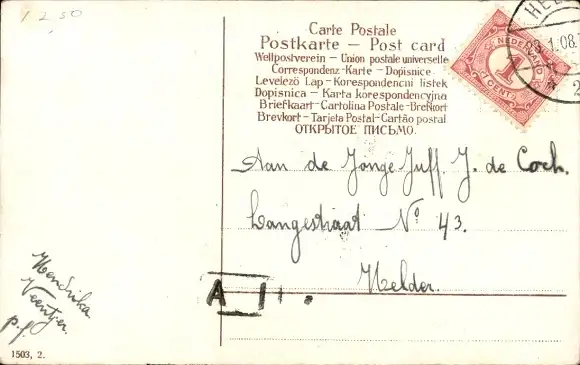 1250
Carte Postale
Postkarte – Post card
Weltpostverein – Union postale universelle
Correspondenz-Karte – Dopisnice
Levelező Lap – Korespondencni listek
Dopisnica – Karta korespondencyjna
Briefkaart – Cartolina Postale – Brefkort
Brevkort – Tarjeta Postal – Cartão postal
ОТКРЫТОЕ ПИСЬМО.
NEDERLAND
1
CENT
HEL
1.08.
2
Aan de Jonge Juff. J. de Coch.
Langestraat No 43.
Helder.
Hendrika
Veentjer
p.f.
A
1503, 2.